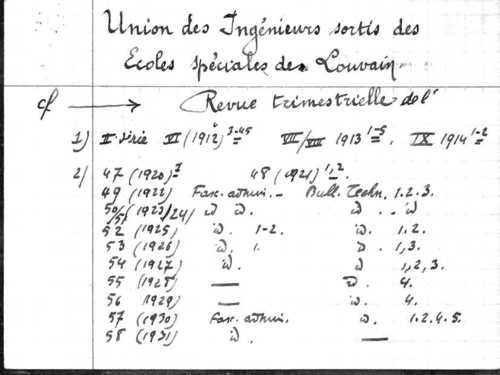 Union des Ingénieurs sortis des
Ecoles spéciales de Louvain
cf → Revue trimestrielle de l'
1) II série VI (1912) 3-45 VII/VIII 1913 1-5, IX 1914 1-2
2) 47 (1920) 48 (1921) 1,2
49 (1922) Fasc. admin. - Bull. Techn. 1.2.3.
50/51 (1923/24) id id. id. - id
52 (1925) id. 1-2. id. 1.2.
53 (1926) id. 1. id. 1,3.
54 (1927) id. id 1,2,3.
55 (1928) — id. 4.
56 1929) — id. 4.
57 (1930) Fasc. admin. id. 1.2.4.5.
58 (1931) id. —